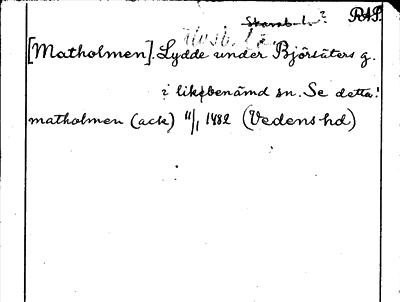 Skarab. l.? RAP.
[Matholmen]. Lydde under Björsäters g.
i likabenämd sn. Se detta!
matholmen (ack) 11/1 1482 (Vedens hd)